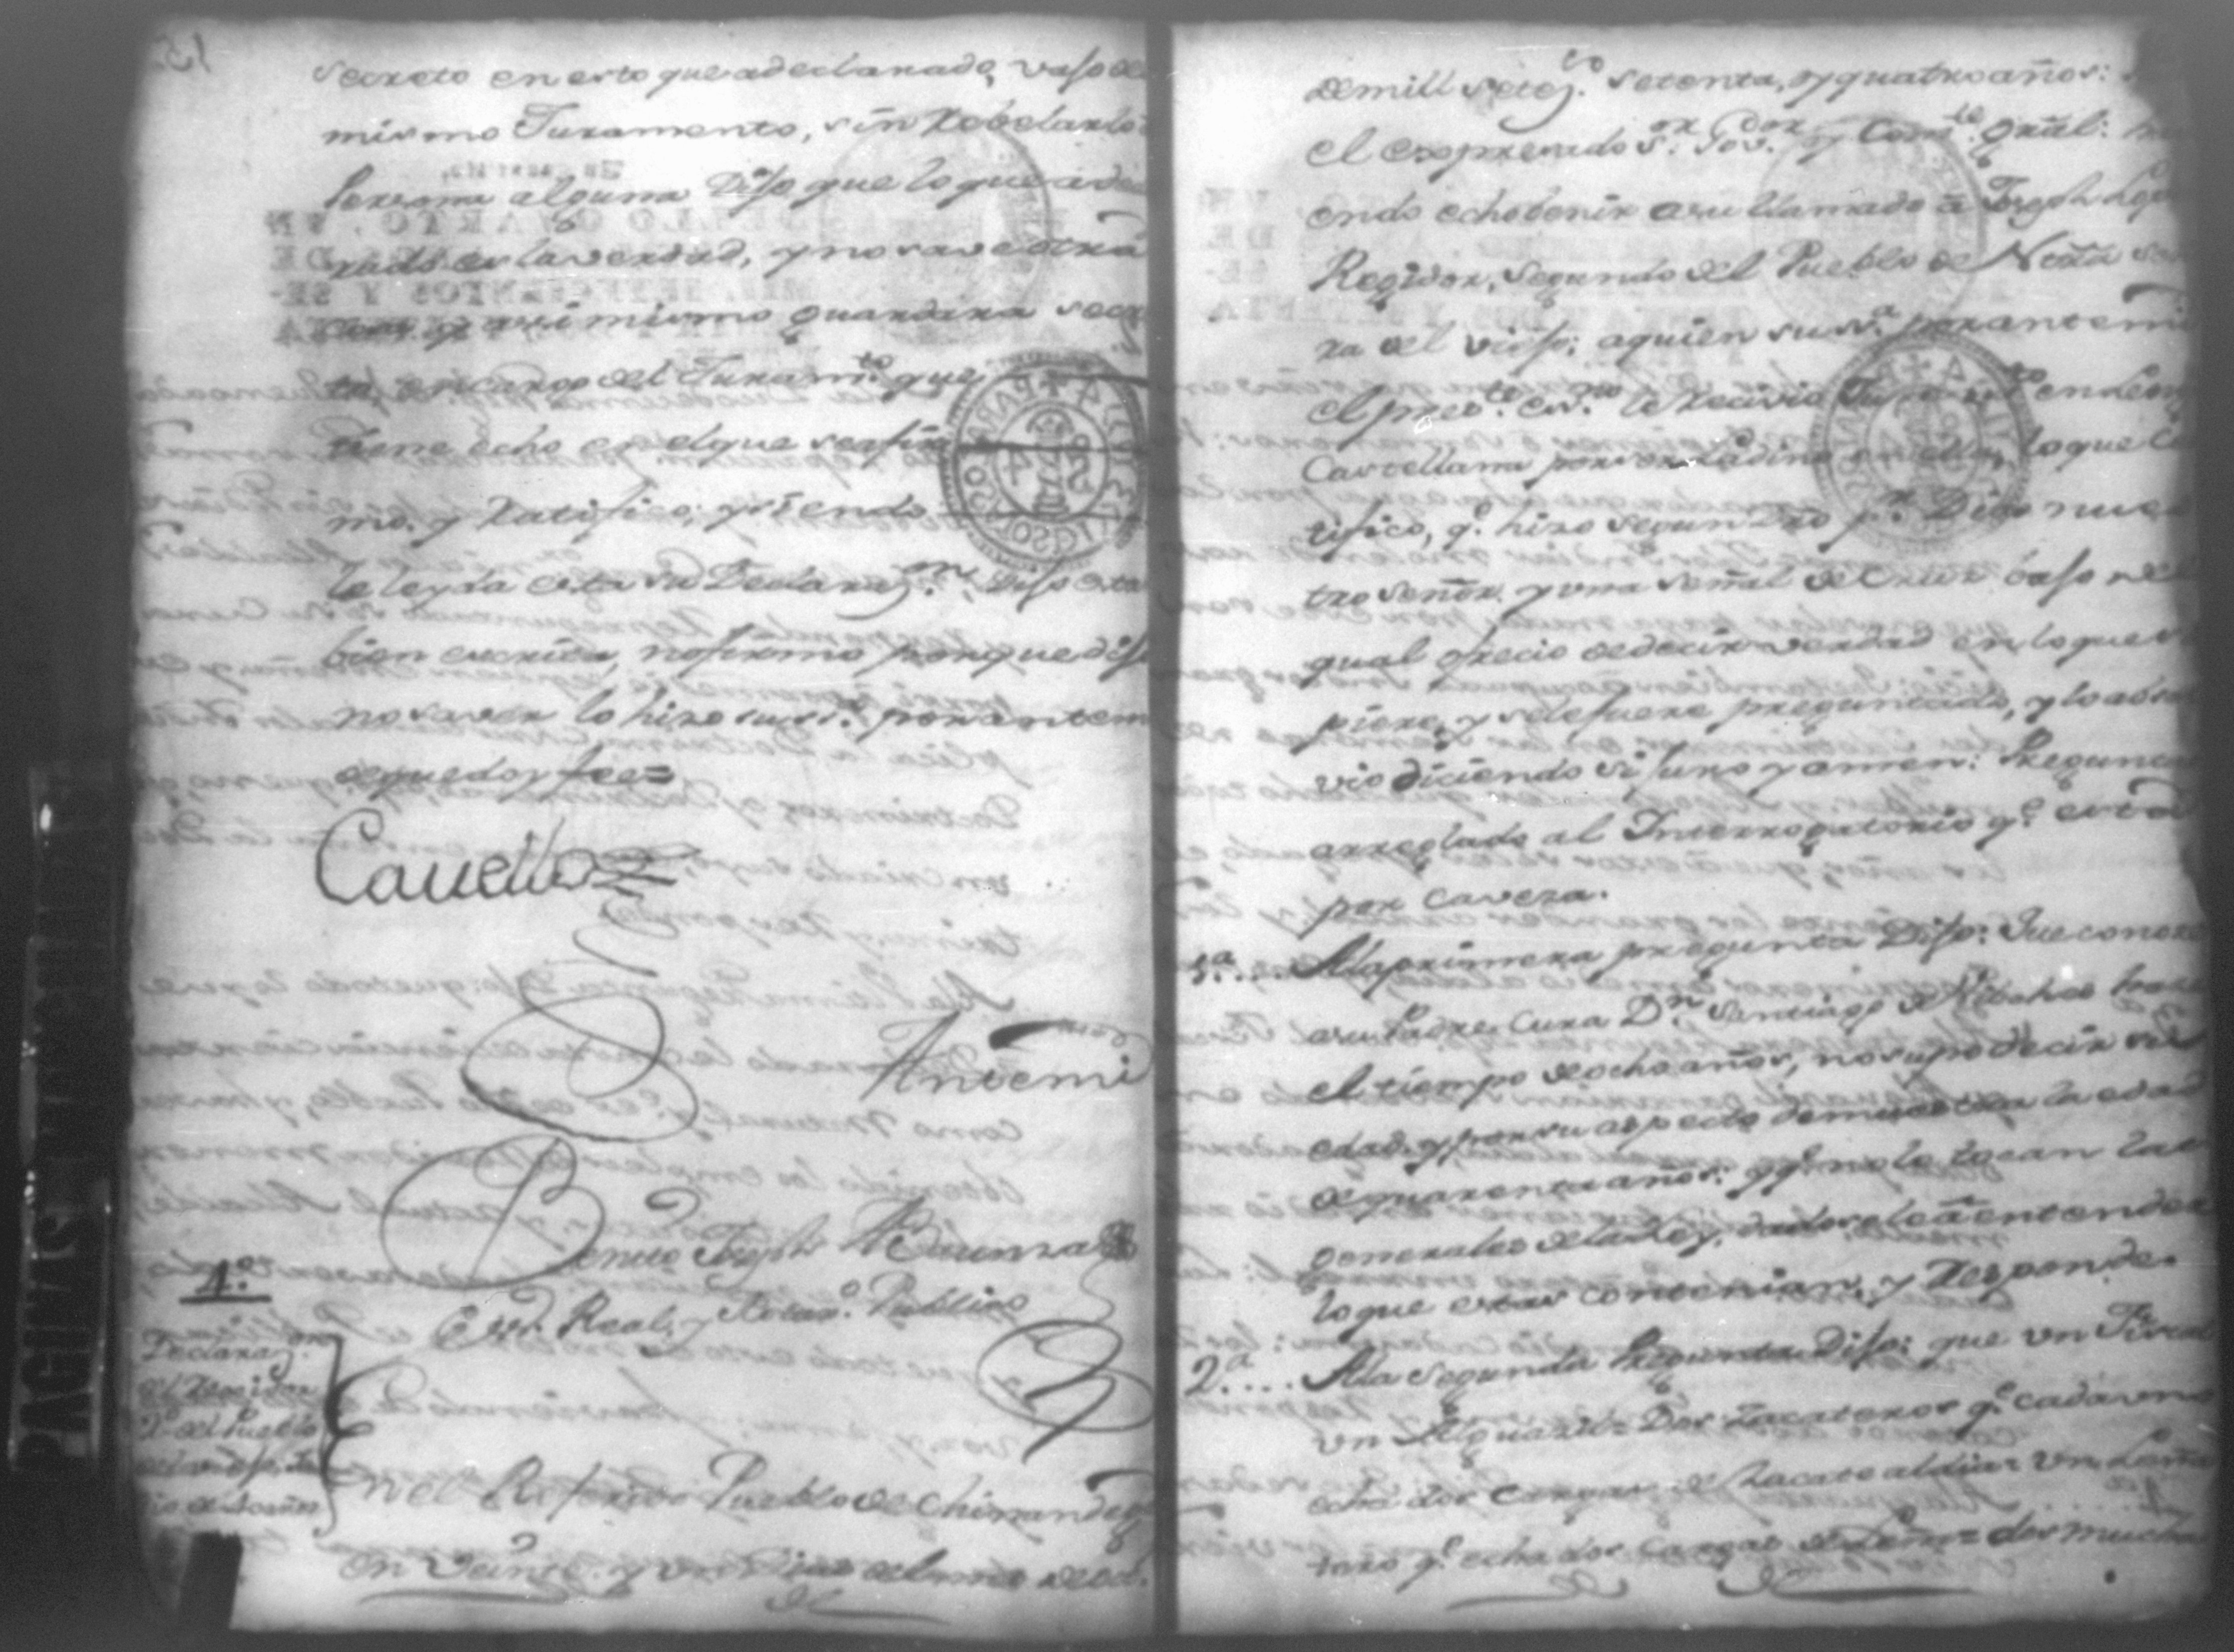 secreto en esto que a declarado, vajo de
mismo Juramento, sin Rebelarlo
Persona alguna Dijo que lo que a decla
rado es la verdad, y no save otra
cosa y asi mismo guardara secre
to encargo del Juram.to que
tiene echo en el que se afir
mo, y Ratifico; y siendo
le leyda esta su Declaraz.on, Dijo esta
bien escrita, no firmo porque dijo
no saver lo hizo su s.a por ante mi
de que doy fee=
Cauello
Antemi
Benito Joseph
Ess.no Real, y Notar.o Publico
4.o
Declaraz.on
del Regidor
2.o del Pueblo
del viejo, Jn
En el Referido Pueblo de Chinandega
en Veinte y un Dias del mes de oct.
de mill setez.to setenta, y quatro años:
el expresado s.or Gov.dor y Com.te Gral: ha
endo echo benir a su llamado â Joseph
Regidor, Segundo del Pueblo de Ntra se
ra del viejo; a quien su s.a por ante mi
el pres.te es.no le Recivio Juram.to en Leng
Castellana por ser ladino en ella, lo que Ce
tifico, q.e hizo segun dro p.r Dios nues
tro señor y una señal de Cruz bajo del
qual ofrecio de decir verdad en lo que su
piere, y se le fuere preguntado, y lo absol
vio diciendo si juro y amen: Pregunta
arreglado al Interrogatorio q.e esta
por caveza.
1.a.... A la primera pregunta Dijo: Que conoze
a su Padre Cura D.n Santiago de Vilches hace
el tiempo de ocho años, no supo decir su
edad, y por su aspecto demuestra la edad
de quarenta años: y q.e no le tocan las
generales de la Ley, dadosele â entender
lo que estas contenian, y Responde.
2.a.... A la segunda Pregunta Dijo: que un Fiscal
un Alguazil= Dos Zacateros q.e cada uno
echa dos cargas de Zacate al dia= Un Leña
tero q.e echa dos Cargas de Leña= dos mucha